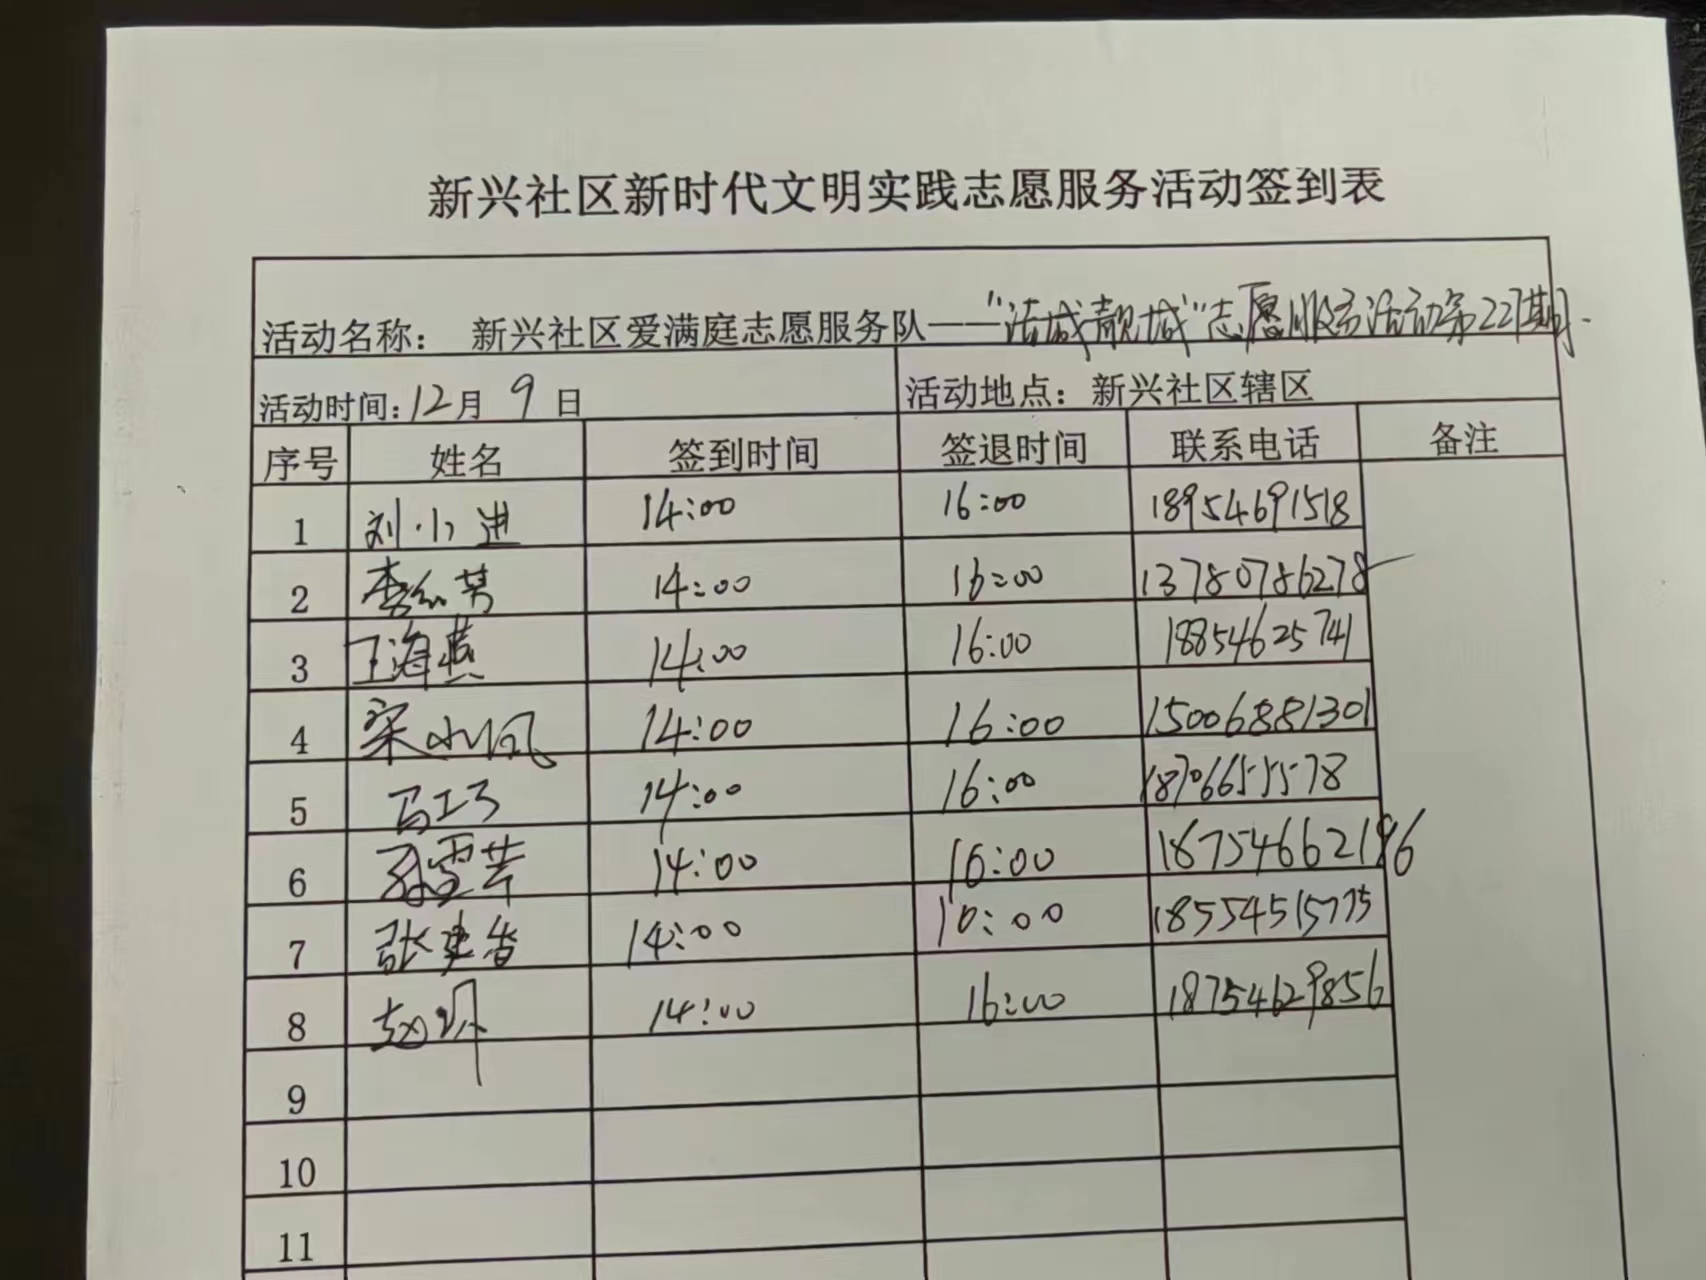 新兴社区新时代文明实践志愿服务活动签到表
活动名称： 新兴社区爱满庭志愿服务队——“洁城靓城”志愿服务活动第227期
活动时间：12月 9 日 活动地点：新兴社区辖区
序号 姓名 签到时间 签退时间 联系电话 备注
1 刘小进 14:00 16:00 18954691518
2 李红芳 14:00 16:00 13780786278
3 王海燕 14:00 16:00 18854625741
4 宋小凤 14:00 16:00 15006881301
5 马工巧 14:00 16:00 18706655578
6 孙雪芹 14:00 16:00 18754662196
7 张建香 14:00 16:00 18554515775
8 赵 14:00 16:00 18754629856
9
10
11